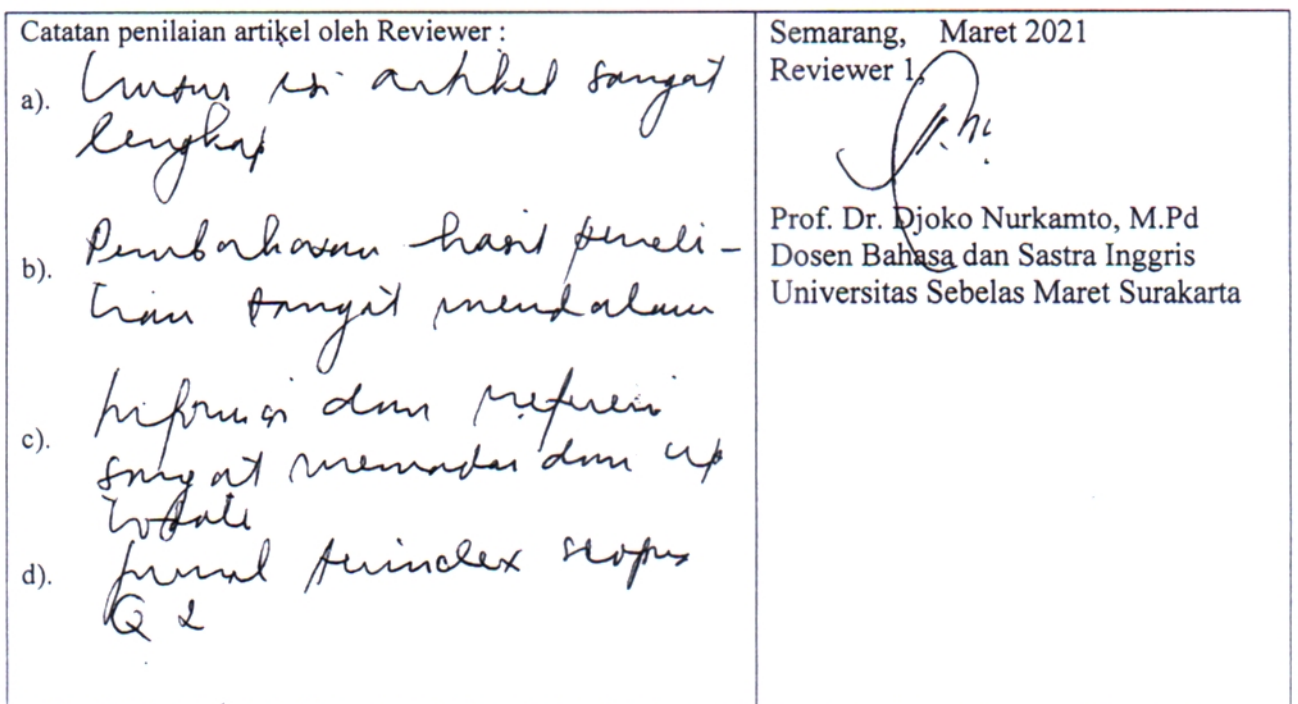 Catatan penilaian artikel oleh Reviewer :
a). Unsur isi artikel sangat
lengkap
b). Pembahasan hasil peneli-
tian sangat mendalam
c). Informasi dan referensi
sangat memadai dan up
to date
d). Jurnal terindex scopus
Q 2
Semarang, Maret 2021
Reviewer 1,
Prof. Dr. Djoko Nurkamto, M.Pd
Dosen Bahasa dan Sastra Inggris
Universitas Sebelas Maret Surakarta